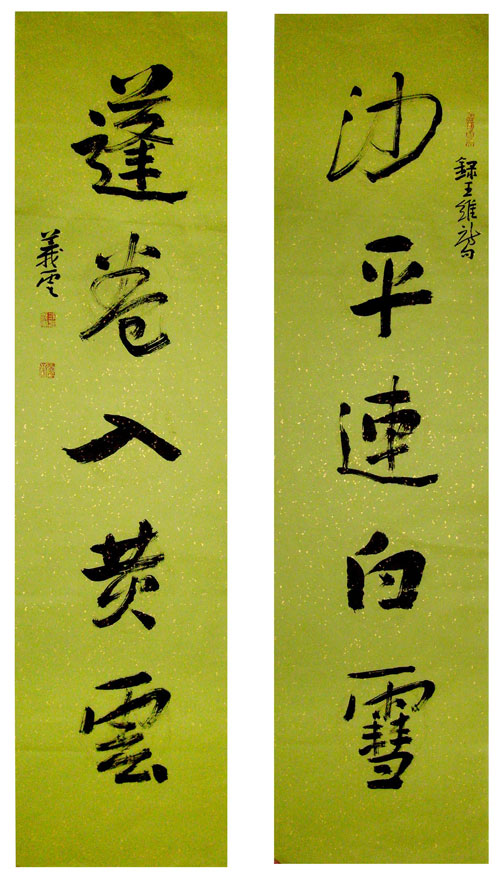 沙平連白雪
錄王維詩句
蓬卷入黄雲
義雲